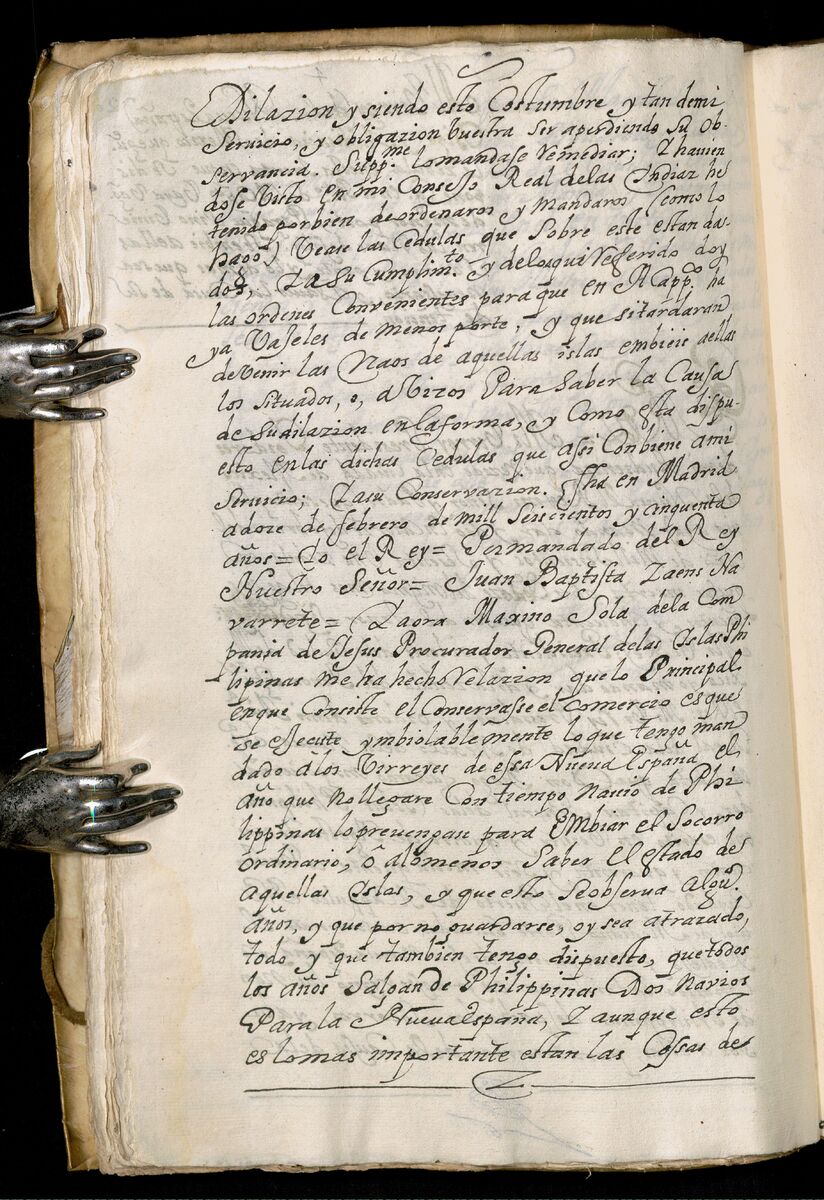 Dilazion y siendo esto Costumbre y tan demi
Servicio, y obligazion buestra ser aperdiendo su Ob-
servancia. Supp.me lomandase Remediar; Y havien
dose Visto En mi Consejo Real delas Yndiaz he
tenido porbien deordenaros y Mandaros (como lo
hago) Vease las Cedulas que Sobre este estan da-
das, Y a Su Cumplim.to y delo aqui Referido doy
las ordenes Convenientes para que en Acapp.o ha
ya Vajeles de menos porte, y que si tardaran
deVenir las Naos de aquellas islas embieis aellas
los situados, o, aVizos Para Saber la Causa
de sudilazion enlaforma, y Como esta dispu-
esto enlas dichas Cedulas que assi Conbiene ami
Servicio; Y asu Conservazion. fha en Madrid
adoze de febrero de mill Seiscientos y cinquenta
años= Yo el Rey= Pormandado del Rey
Nuestro Señor= Juan Baptista Zaens Na
varrete= Y aora Maxino Sola dela Com
pania de Jesus Procurador General delas Yslas Phi
lipinas me ha hecho Relazion quelo Principal
enque Consiste el Conservasse el Comercio es que
se ejecute ymbiolablemente lo que tengo man
dado alos Virreyes de essa Nueva España el
año que nollegare Con tiempo Navio de Phi
lippinas loprevengan para EMbiar el Socorro
Ordinario, ô alomenos Saber el estado de
aquellas Yslas, y que esto seobserva algu.s
años, y que por no guardarse, oy sea atrazado,
todo y que tambien tengo dispuesto, quetodos
los años Salgan de Philippinas Dos Navios
Parala Nuevaespaña, Y aunque esto
es lomas importante estan las Cossas de